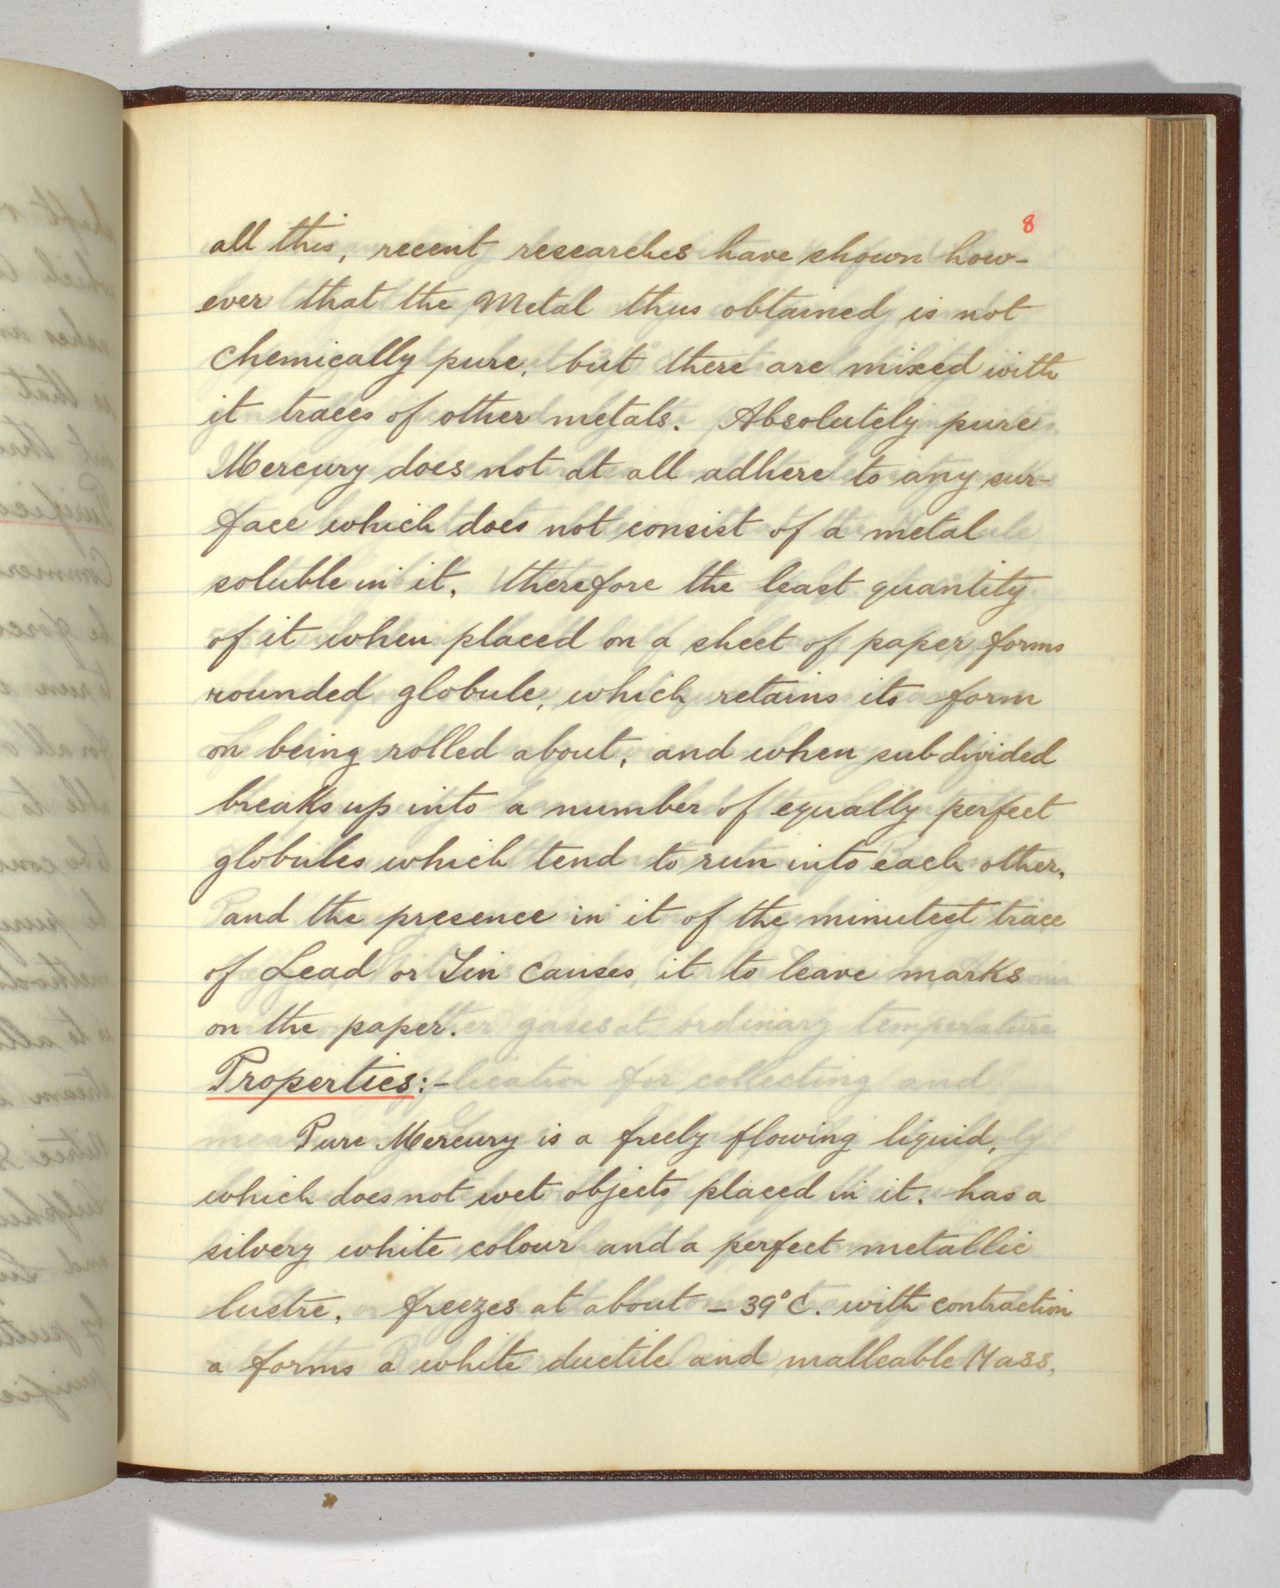 8
all this, recent researches have shown how-
ever that the Metal thus obtained is not
chemically pure, but there are mixed with
it traces of other metals. Absolutely pure
Mercury does not at all adhere to any sur-
face which does not consist of a metal
soluble in it, therefore the least quantity
of it when placed on a sheet of paper forms
rounded globule, which retains its form
on being rolled about, and when subdivided
breaks up into a number of equally perfect
globules which tend to run into each other,
and the presence in it of the minutest trace
of Lead or Tin causes it to leave marks
on the paper.
Properties:-
Pure Mercury is a freely flowing liquid,
which does not wet objects placed in it. has a
silvery white colour and a perfect metallic
lustre. freezes at about - 39°C. with contraction
a forms a white ductile and malleable Mass.